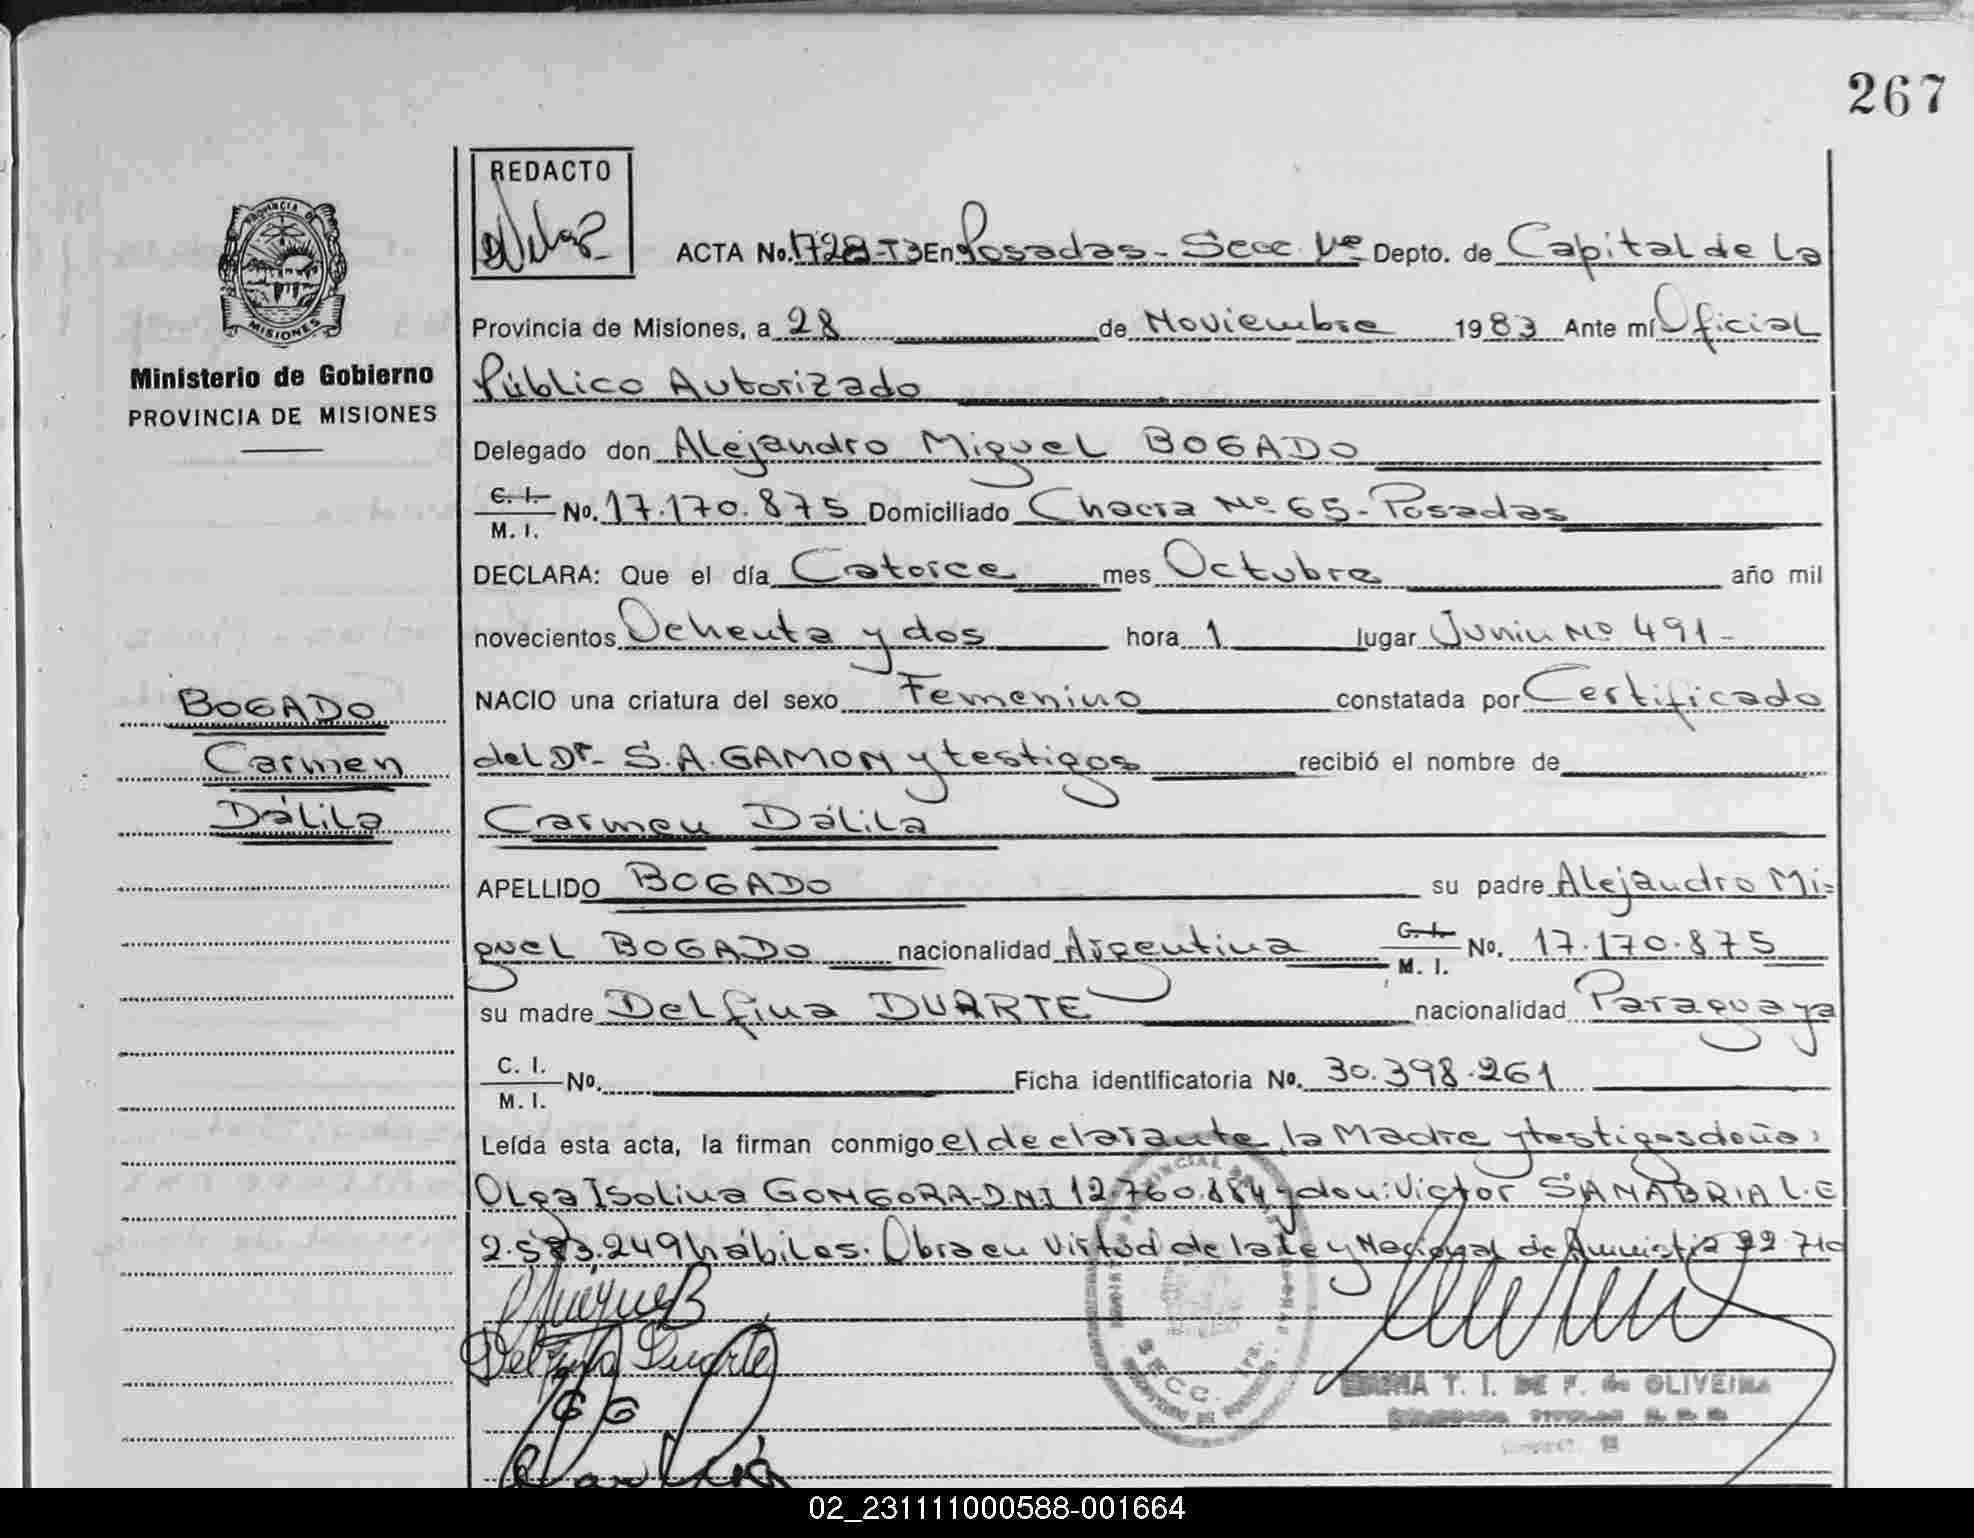 267
REDACTO
ACTA No. 1728-T3 En Posadas - Secc. 1re Depto. de Capital de la
Provincia de Misiones, a 28 de Noviembre 1983 Ante mí Oficial
Público Autorizado
Delegado don Alejandro Miguel BOGADO
C. I. M. I. No. 17.170.875 Domiciliado Chacra Nº 65 - Posadas
DECLARA: Que el día Catorce mes Octubre año mil
novecientos Ochenta y dos hora 1 lugar Junin Nº 491 -
NACIO una criatura del sexo Femenino constatada por Certificado
del Dr. S. A. GAMON y testigos recibió el nombre de
Carmen Dálila
APELLIDO BOGADO su padre Alejandro Mi=
guel BOGADO nacionalidad Argentina C. I. M. I. No. 17.170.875
su madre Delfina DUARTE nacionalidad Paraguaya
C. I. M. I. No. Ficha identificatoria No. 30.398.261
Leída esta acta, la firman conmigo el declarante, la Madre y testigos doña:
Olga Isolina GONGORA - D.N.I 12.760.884 y don: Victor SANABRIA L.E
2.573.249 hábiles. Obra en virtud de la Ley Nacional de Amnistia 22.710
Delfina Duarte
T. I. DE F. de OLIVEIRA
SECC. 1ra.
PROVINCIA DE
MISIONES
Ministerio de Gobierno
PROVINCIA DE MISIONES
BOGADO
Carmen
Dálila
02_231111000588-001664